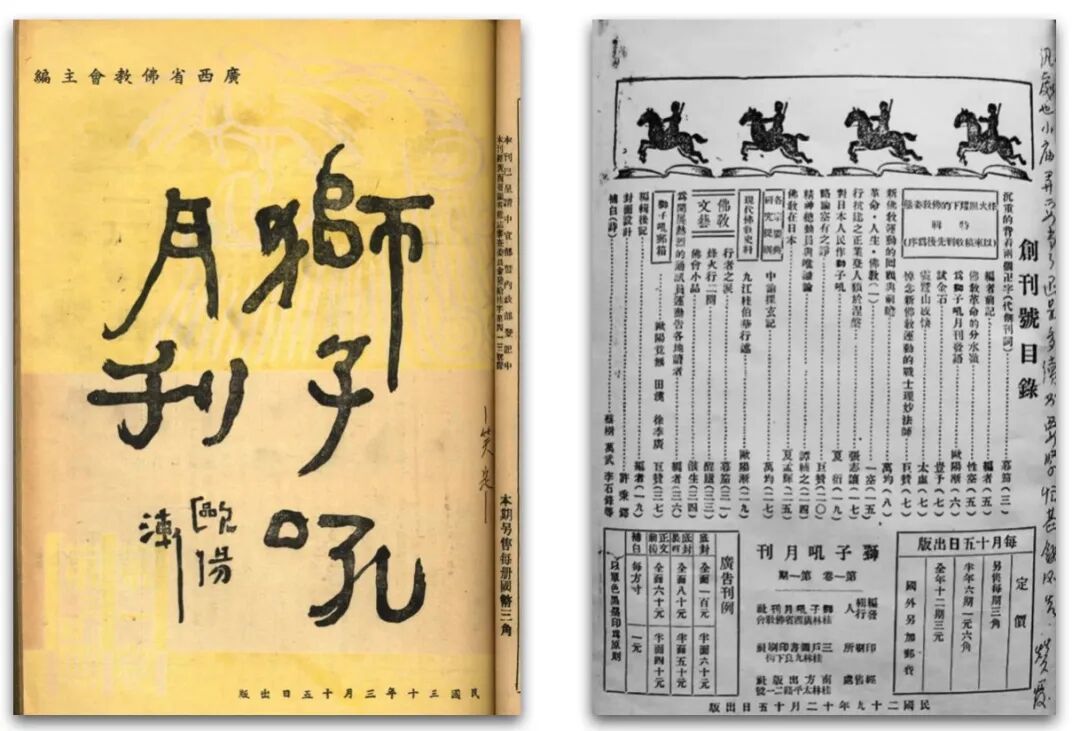 廣西省佛教會主編
獅子吼
月刊
歐陽漸
本刊已呈請中宣部暨內政部登記中
本期另售每册國幣三角
民國三十年三月十五日出版
創刊號目錄
沉重的背着兩個卍字(代創刊詞)……暮笳(三)
特輯
(以來稿收到先後爲序)
編者前記……編者(五)
佛教革命的分水嶺……性塞(五)
爲獅子吼月刊發語……歐陽漸(六)
試金石……豈予(七)
靈鷲山成佛……太虛(七)
悼念新佛教運動的戰士理妙法師……巨贊(七)
新佛教運動的回顧與前瞻……萬均(八)
革命·人生·佛教(一)……一塞(五)
行抗迄之正業登人類於湼槃……張志讓(一七)
對日本人民作獅子吼……夏衍(一九)
略論空有之諍……巨贊(二〇)
精神總動員與唯識論……譚輔之(二四)
佛教在日本……夏孟輝(二五)
各宗要典研究提綱
中論探玄記……萬均(二八)
現代佛教史料
九江桂伯華行述……歐陽漸(二九)
佛教文藝
行者之淚……暮笳(三一)
烽火行二闋……醒還(三三)
佛會小品……(三四)
爲開展熱烈的通訊員運動告各地讀者……編者(三六)
獅子吼郵箱
歐陽竟無 田漢 徐季廣 巨贊(三七)
編輯後記……編者(一九)
封面設計……
補白(詩)……蔡樹 萬武 李石鋒等
每月十五日出版
定價
另售每期三角
半年六期一元六角
全年十二期三元
國外另加郵費
獅子吼月刊
第一卷第一期
編輯發行人
獅子吼月刊社
桂林廣西省佛教會
印刷所
三戶圖書印刷社
經售處
南方出版社
桂林太平路二一號
廣告刊例
底封 全面一百元 半面六十元
全面八十元 半面五十元
正文前後 全面六十元 半面四十元
補白 每方寸 一元
以單色黑墨印爲原則
民國二十九年十二月十五日出版